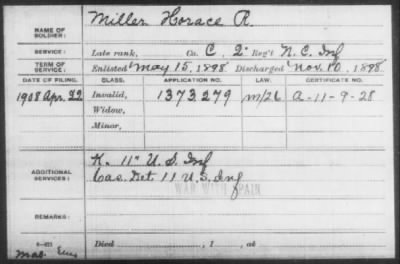 Miller Horace R.
NAME OF SOLDIER:
SERVICE: Late rank, Co. C 2" Reg't N.C. Inf
TERM OF SERVICE: Enlisted May 15, 1898 Discharged Nov. 10, 1898
DATE OF FILING. CLASS. APPLICATION NO. LAW. CERTIFICATE NO.
1908 Apr. 22 Invalid, 1373279 A-11-9-28
Widow,
Minor,
K. 11" U.S. Inf
ADDITIONAL SERVICES: Cas. Det 11 U.S. Inf
WAR WITH SPAIN
REMARKS:
Died , 1 , at